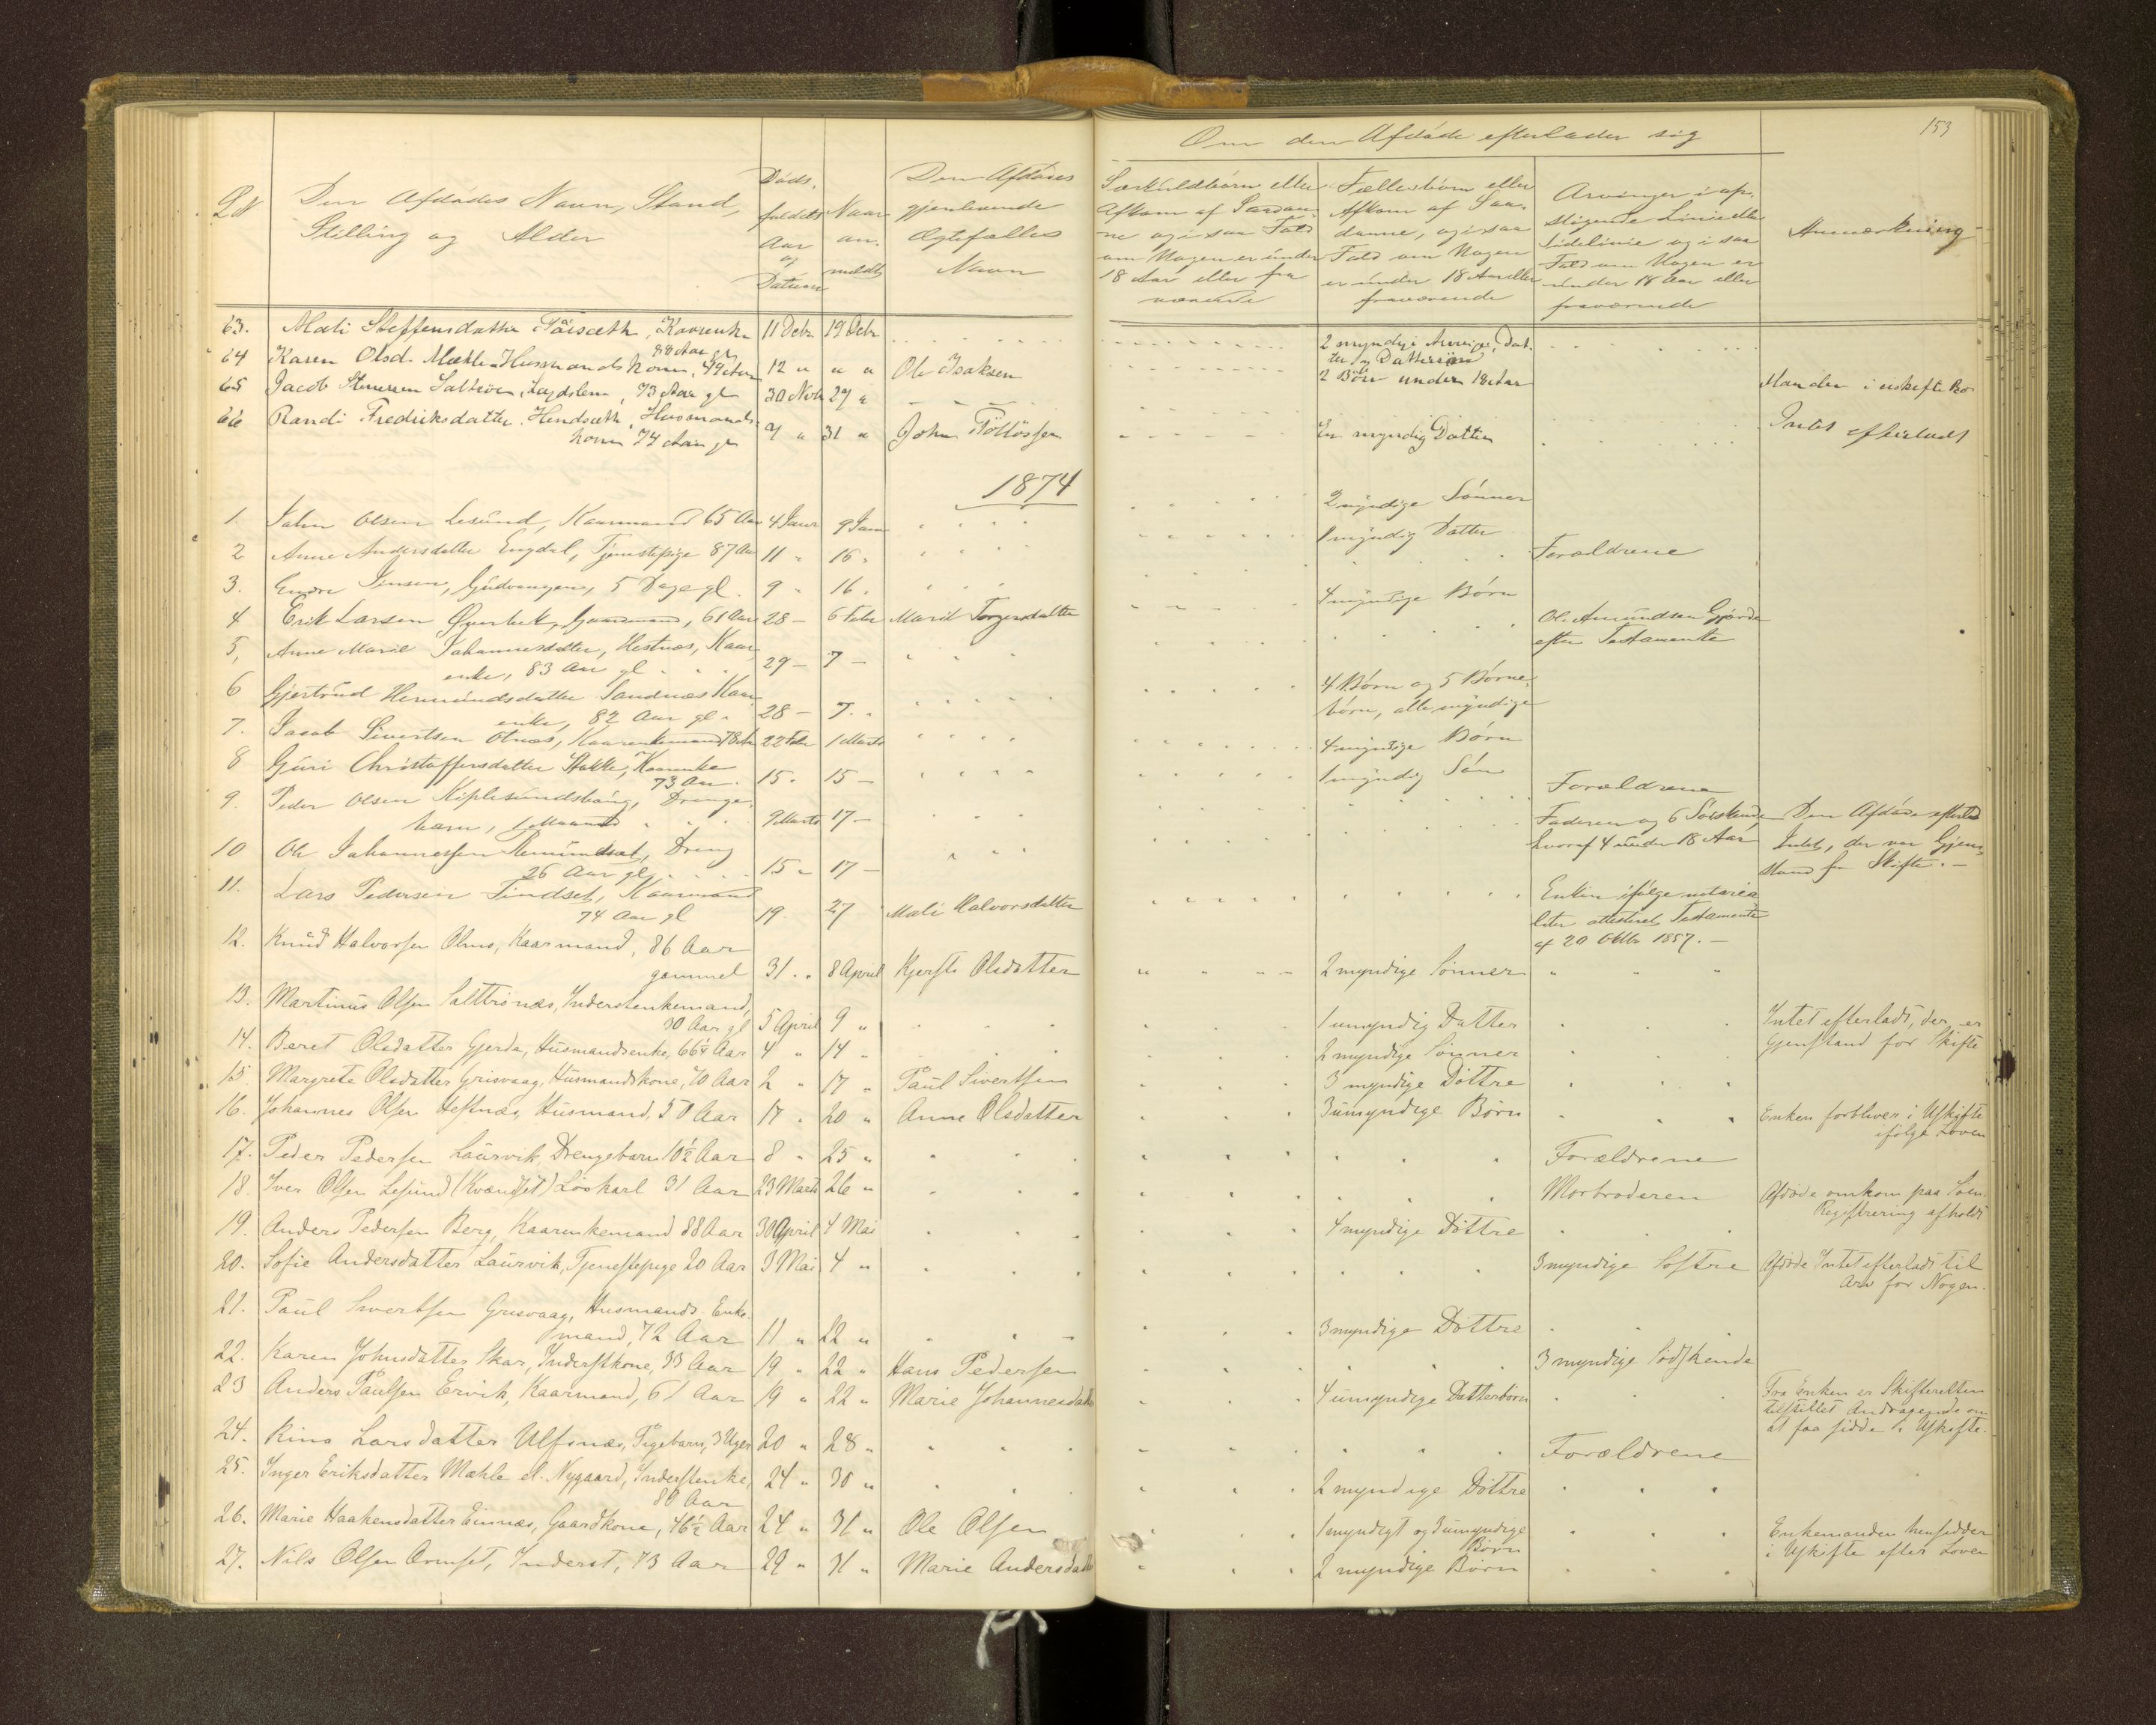 153
Om den Afdøde efterlader sig
L N
Den Afdødes Navn, Stand,
Stilling og Alder
Døds-
faldets
Aar
og
Datum
Naar
an-
meldt
Den Afdødes
gjenlevende
Ægtefælles
Navn
Særkuldbørn eller
Afkom af Saadan-
ne og i saa Fald
om Nogen er under
18 Aar eller fra
værende
Fællesbørn eller
Afkom af Saa-
danne, og i saa
Fald om Nogen
er under 18 Aar eller
fraværende
Arvinger i op-
stigende Linie eller
Sidelinie og i saa
Fald om Nogen er
under 18 Aar eller
fraværende
Anmærkning
63. Mali Steffensdatter, Kaarenke 11 Debr 19 Debr 2 myndige Arvinger, Dat-
88 Aar gl ter og Dattersøn
64 Karen Olsd. Mæhle Husmandskone, 49 Aar 12 " " " Ole Isaksen 2 Børn under 18 Aar Manden i uskiftet Bo
65 Jacob Saltrøe, Lægdslem, 73 Aar gl 30 Nvb 29 "
66 Randi Fredriksdatter Hendsæth, Husmands- 7 " 31 " John En myndig Datter Intet efterladt
kone 74 Aar gl
1874
1. John Olsen Lesund, Kaarmand 65 Aar 4 Janr 9 Janr 2 myndige Sønner
2 Anne Andersdatter Engdal, Tjenestepige 87 Aar 11 " 16 " 1 myndig Datter
3. Jensen, Gudvangen, 5 Dage gl. 9 " 16 " Forældrene
4 Erik Larsen, Gaardmand, 61 Aar 28 - 6 Febr Marit Torgersdatter 4 myndige Børn
5, Anne Marie Johannesdatter, Hestnæs, Kaar- 29 - 7 - Ole Amundsen Gjerde
enke, 83 Aar gl efter Testamente
6 Gjertrud Sandnæs Kaar- 28 - 7. " 4 Børn og 5 Børne-
enke, 82 Aar gl. børn, alle myndige
7. Jacob Sivertsen Otnæs, Kaarenkemand 78 Aar 22 Febr 1 Marts 4 myndige Børn
8 Guri Christoffersdatter Stokke, Kaarenke 15. 15 - 1 myndig Søn
73 Aar.
9. Peder Olsen Kiplesundsbaug, Drenge- 9 Marts 17 - Forældrene
barn, 1 Maaned
10 Ole Johannessen, Dreng 15 " 17 - Faderen og 6 Søskende Den Afdøde efterlod
26 Aar gl hvoraf 4 under 18 Aar Intet, der var Gjen-
stand for Skifte. -
11. Lars Pedersen Tindset, Kaarmand 19. 27 Mali Halvorsdatter Enken ifølge notaria-
74 Aar gl liter attesteret Testamente
af 20 Oktbr 1857. -
12. Knud Halvorsen, Kaarmand, 86 Aar
gammel 31. " 8 April Kjersti Olsdatter 2 myndige Sønner
13. Martinus Olsen Salthsnæs, Inderstenkemand,
30 Aar gl 5 April 9 " 1 umyndig Datter Intet efterladt, der er
Gjenstand for Skifte
14. Beret Olsdatter Gjerde, Husmandsenke, 66 1/4 Aar 4 " 14 " 2 myndige Sønner
15. Margrete Olsdatter Grisvaag, Husmandskone, 70 Aar 2 " 17 " Paul Sivertsen 3 myndige Døttre
16. Johannes Olsen Hestnæs, Husmand, 50 Aar 17 " 20 " Anne Olsdatter 3 umyndige Børn Enken forbliver i Uskifte
ifølge Loven
17. Peder Pedersen Laurvik, Drengebarn 10 1/2 Aar 8 " 25 " Forældrene
18. Iver Olsen Lesund (Kvændset) Løskarl 31 Aar 23 Marts 26 " Morbroderen Afdøde omkom paa Søen.
Registrering afholdt
19. Anders Pedersen Berg, Kaarenkemand 88 Aar 30 April 4 Mai 4 myndige Døttre
20. Sofie Andersdatter Laurvik, Tjenestepige 20 Aar 3 Mai 4 " 3 myndige Søstre Afdøde Intet efterladt til
Arv for Nogen.
21. Paul Sivertsen Grisvaag, Husmands Enke-
mand, 72 Aar 11 " 22 " 3 myndige Døttre
22. Karen Johnsdatter Skar, Inderstkone, 33 Aar 19 " 22 " Hans Pedersen 3 myndige Sødskende
23 Anders Paulsen Ervik, Kaarmand, 61 Aar 19 " 22 " Marie Johannesdatter 4 umyndige Datterbørn Fra Enken er Skifteretten
tilstillet Andragende om
at faa sidde i Uskifte.
24. Larsdatter Ulfsnæs, Pigebarn, 3 Uger 20 " 28 " Forældrene
25. Inger Eriksdatter Mæhle el. Nygaard, Inderstenke, 24 " 30 " 2 myndige Døttre
80 Aar
26. Marie Haakensdatter Einnæs, Gaardkone, 46 1/2 Aar 24 " 31 " Ole Olsen 1 myndigt og 3 umyndige Enkemanden hensidder
Børn i Uskifte efter Loven
27. Nils Olsen, Inderst, 73 Aar 29 " 31 " Marie Andersdatter 2 myndige Børn